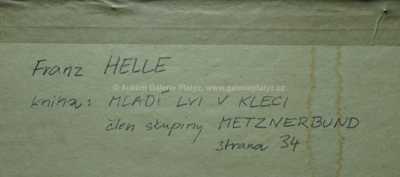 Franz HELLE
© Aukční Galerie Platýz, www.galerieplatyz.cz
kniha: MLADÍ LVI V KLECI
člen skupiny METZNERBUND
strana 34